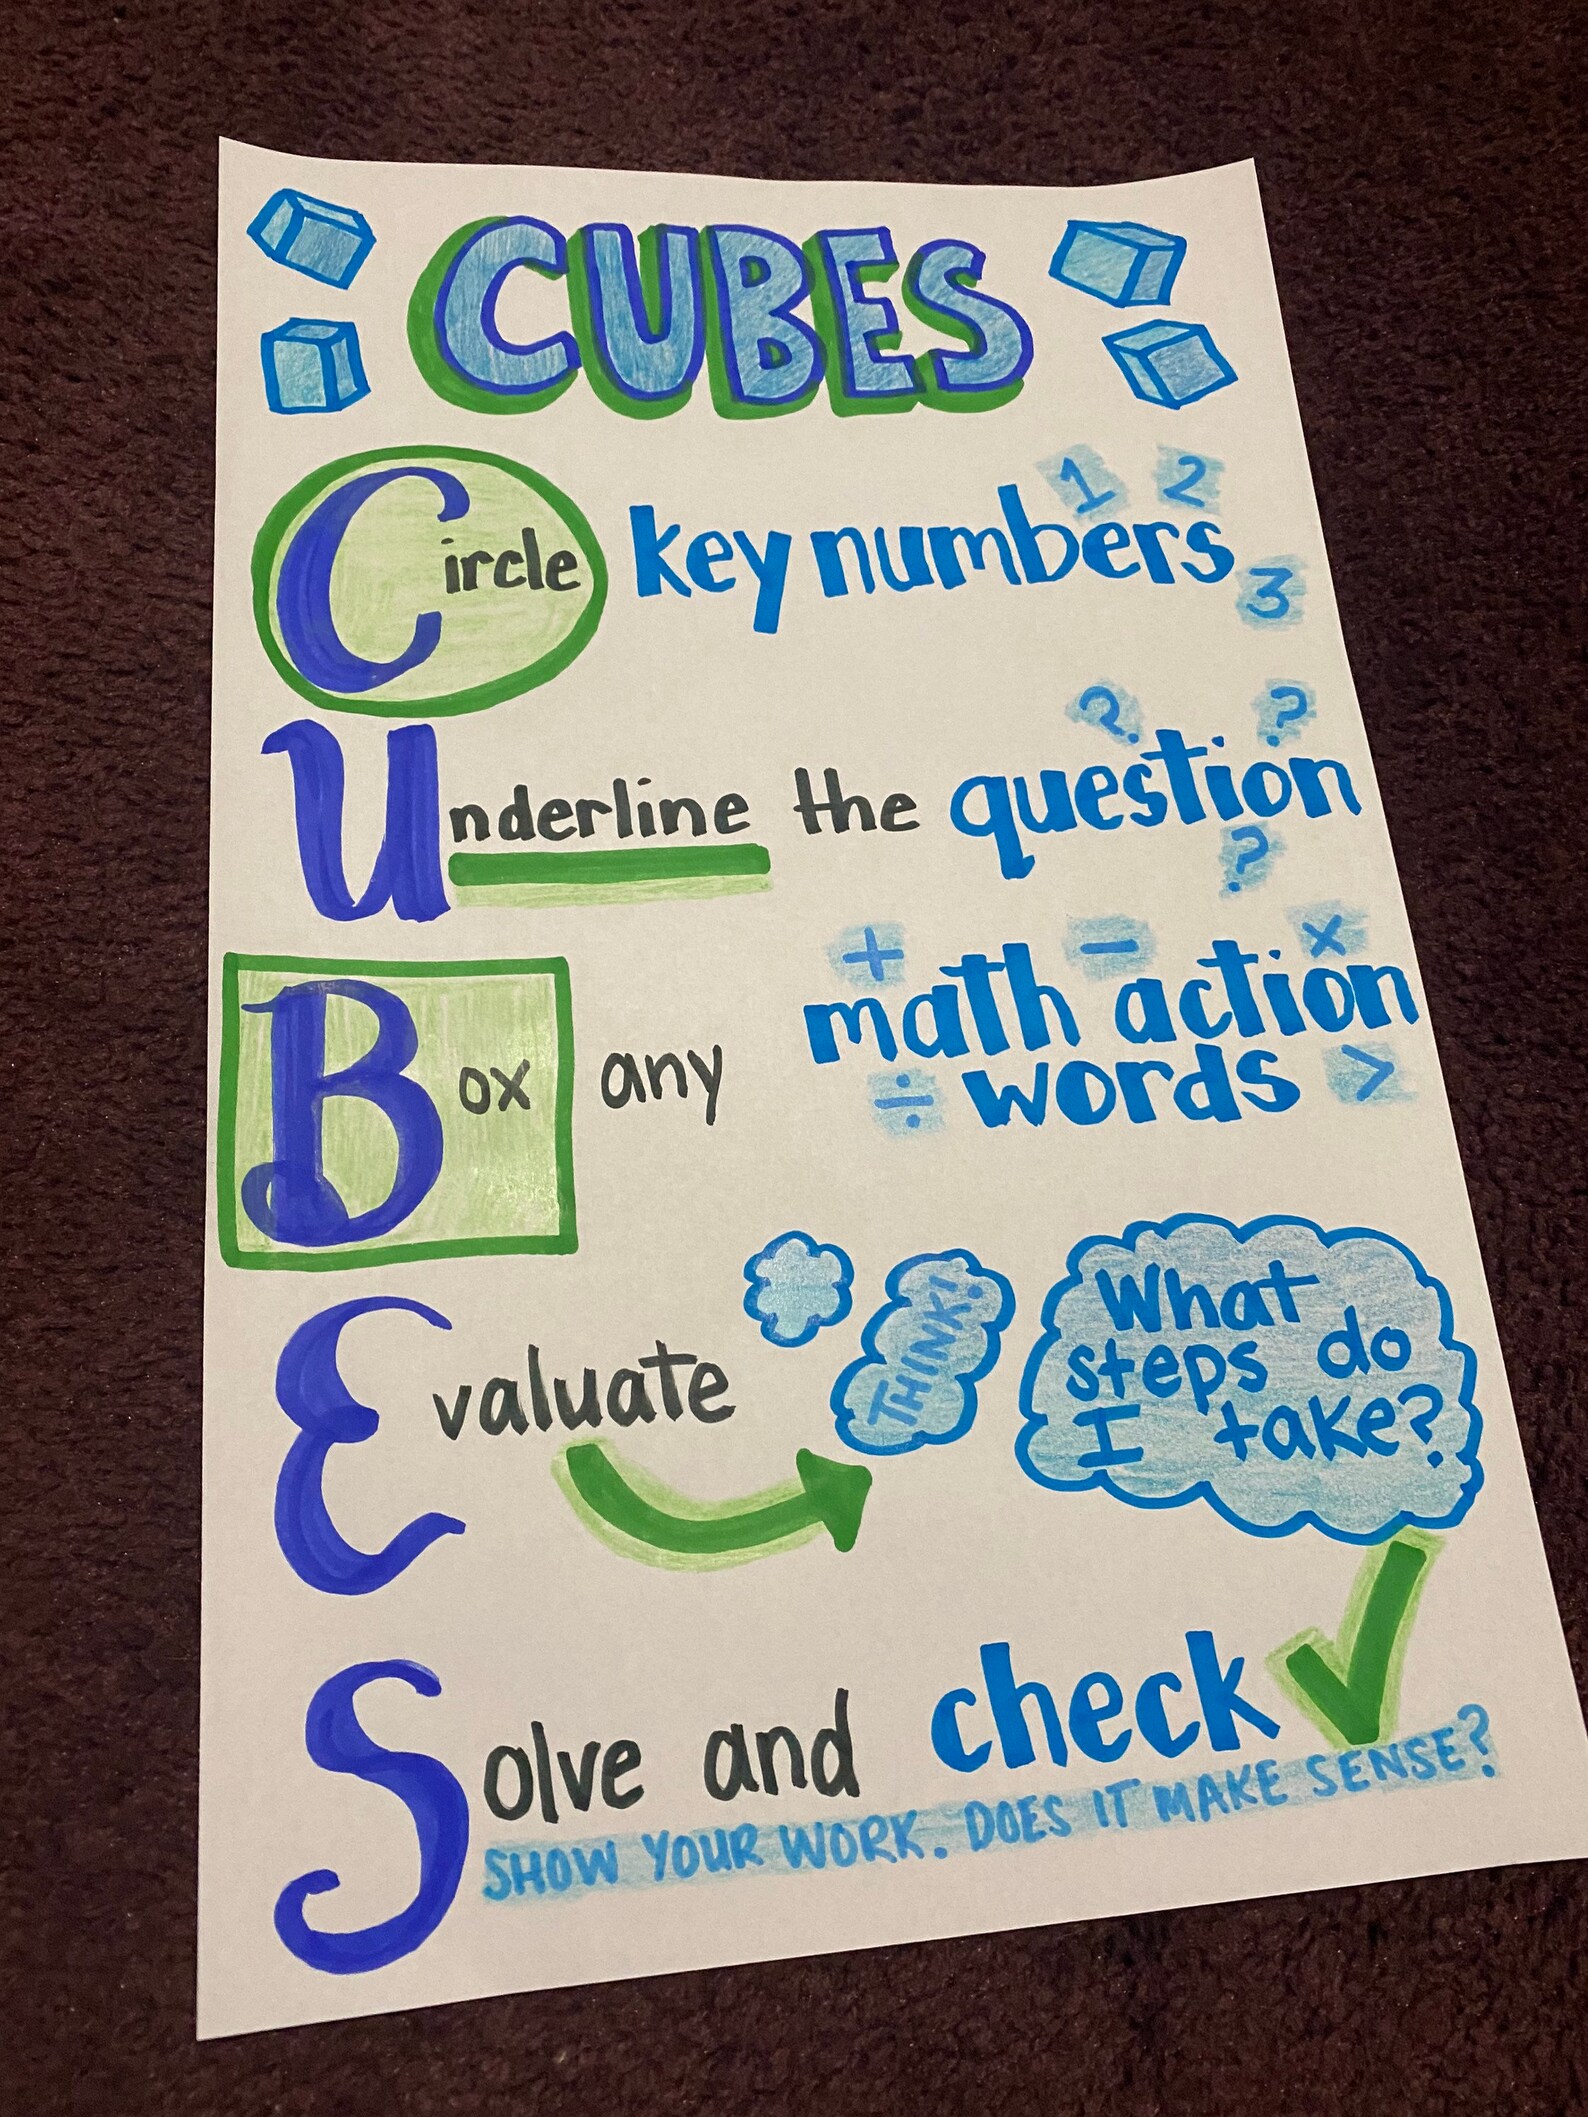 CUBES
Circle key numbers 1 2 3
Underline the question ? ? ?
Box any math action words + - × ÷ >
Evaluate THINK! What steps do I take?
Solve and check
SHOW YOUR WORK. DOES IT MAKE SENSE?